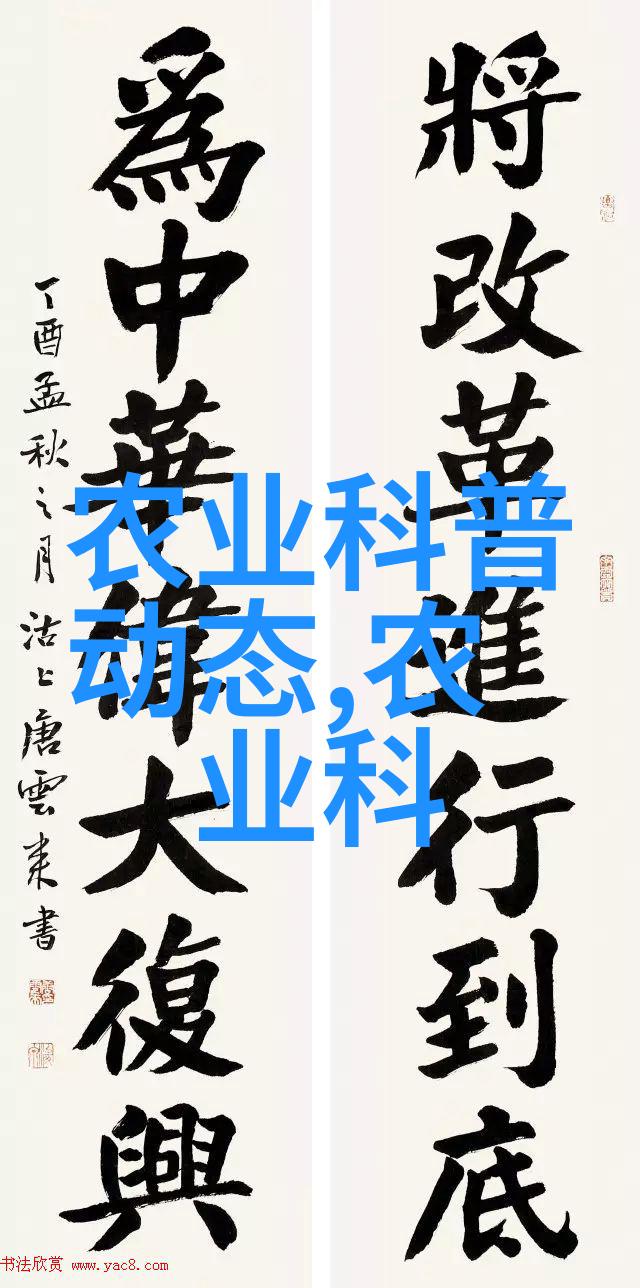 將改革進行到底
為中華偉大復興
丁酉孟秋之月沽上唐雲來書
农业科普
动态,农
业科
书法欣赏 www.yac8.com